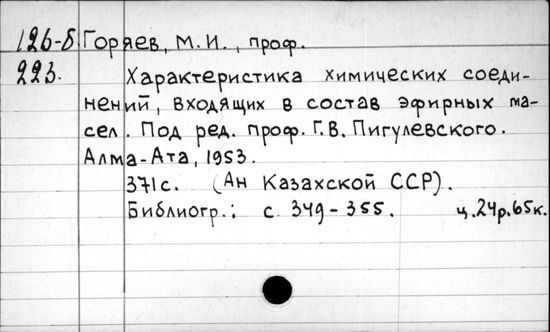 126-5 Горяев, М.И., проф.
223. Характеристика химических соеди-
нений, входящих в состав эфирных ма-
сел. Под ред. проф. Г.В. Пигулевского.
Алма-Ата, 1953.
371с. (Ан Казахской ССР).
Библиогр.: с. 349-355. ц. 24р. 65к.